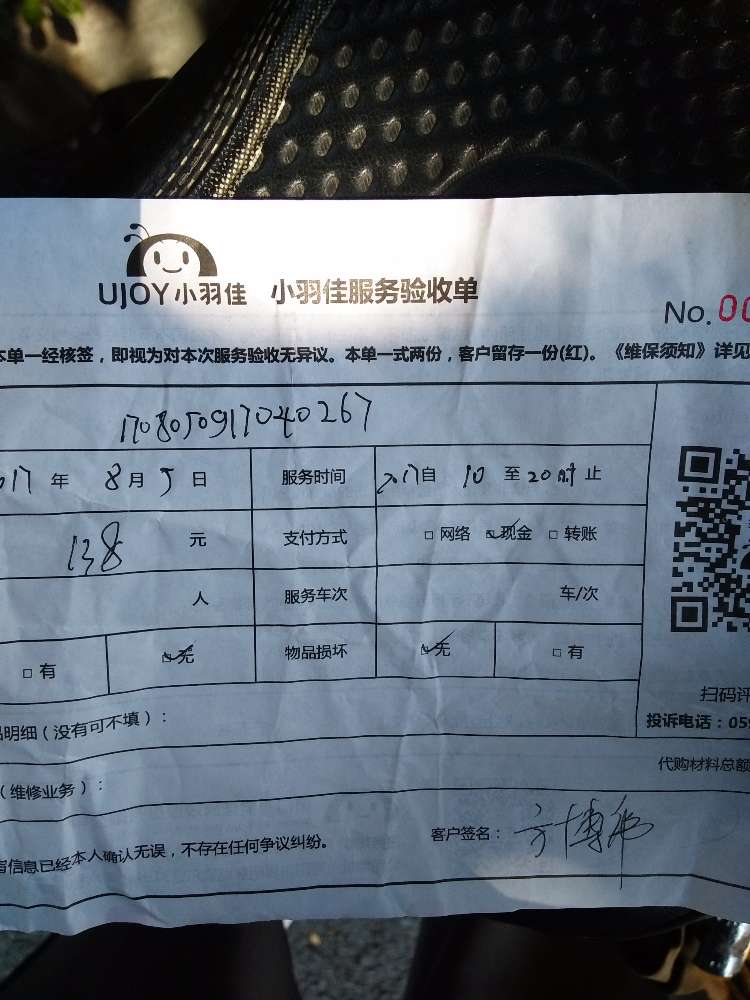 UJOY小羽佳 小羽佳服务验收单
No.00
本单一经核签，即视为对本次服务验收无异议。本单一式两份，客户留存一份(红)。《维保须知》详见
1708050917040267
017 年 8 月 5 日 服务时间 自 10 至 20 时 止
138 元 支付方式 □ 网络 ☑ 现金 □ 转账
人 服务车次 车/次
□ 有 ☑ 无 物品损坏 ☑ 无 □ 有
扫码评
明细（没有可不填）：
投诉电话：059
代购材料总额
（维修业务）：
客户签名：
信息已经本人确认无误，不存在任何争议纠纷。